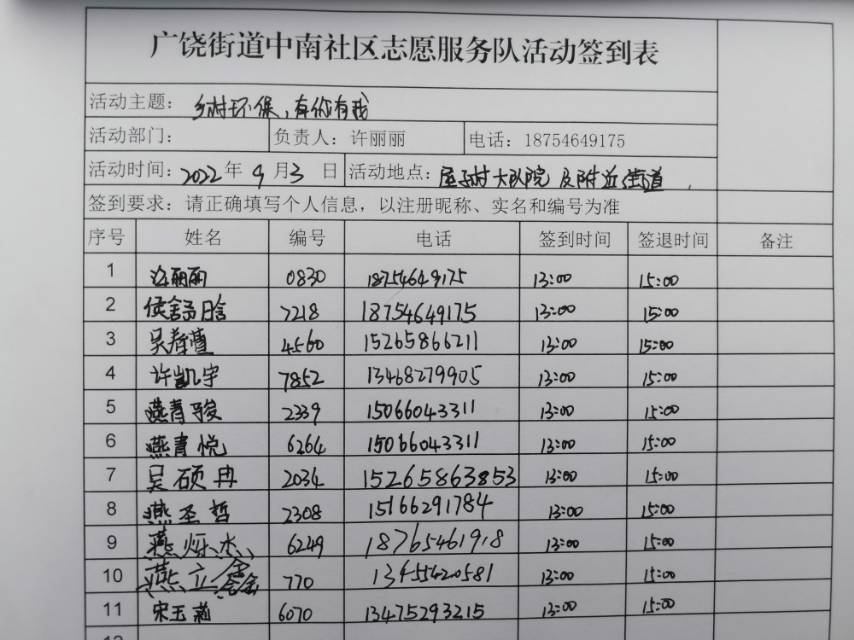 广饶街道中南社区志愿服务队活动签到表
活动主题：乡村环保，有你有我
活动部门： 负责人：许丽丽 电话：18754649175
活动时间：2022年9月3日 活动地点：屋子村大队院及附近街道
签到要求：请正确填写个人信息，以注册昵称、实名和编号为准
序号 姓名 编号 电话 签到时间 签退时间 备注
1 许丽丽 0830 18754649175 13:00 15:00
2 侯舒晗 7218 18754649175 13:00 15:00
3 4560 15265866211 13:00 15:00
4 许凯宇 7852 13468279905 13:00 15:00
5 燕青骏 2339 15066043311 13:00 15:00
6 燕青悦 6264 15066043311 13:00 15:00
7 吴硕冉 2034 15265863853 13:00 15:00
8 燕圣哲 2308 15166291784 13:00 15:00
9 燕烁 6249 18765461918 13:00 15:00
10 燕立鑫 770 13455420581 13:00 15:00
11 宋玉 6070 13475293215 13:00 15:00